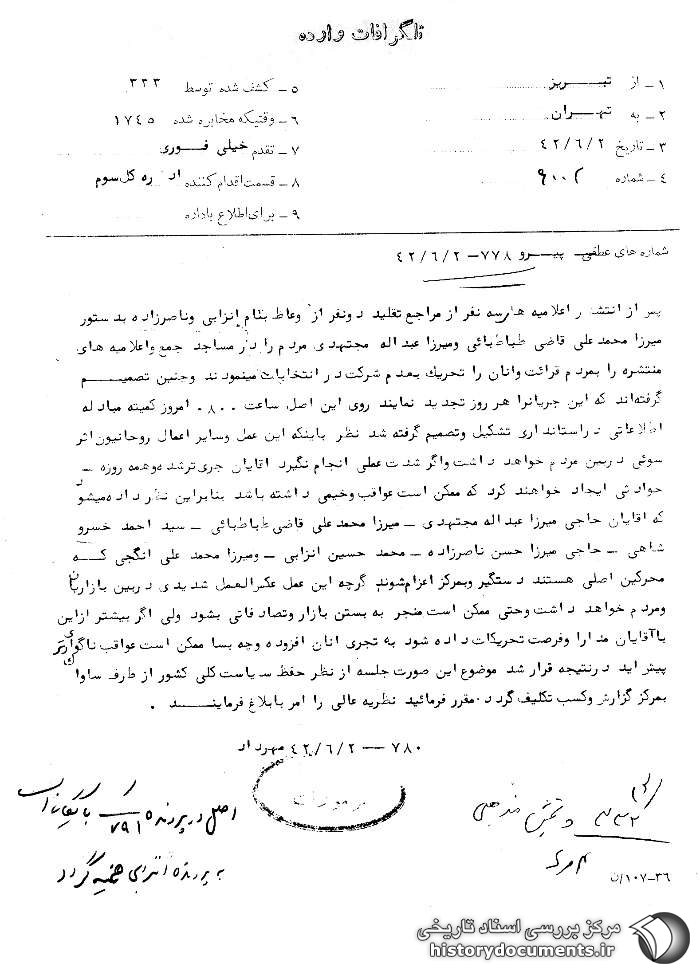 تلگرافات وارده
۱ـ از تبـریز
۲ـ به تهـران
۳ـ تاریخ ۴۲/۶/۲
۴ـ شماره ۹۰۰۲
۵ـ کشف شده توسط ۳۳۳
۶ـ وقتیکه مخابره شده ۱۷۴۵
۷ـ تقدم خیلی فـوری
۸ـ قسمت اقدام کننده اداره کل سوم
۹ـ برای اطلاع باداره
شماره های عطفی پیـرو ۷۷۸ـ ۴۲/۶/۲
پس از انتشار اعلامیه هارسه نفر از مراجع تقلید دونفر از وعاظ بنام انزابی وناصرزاده بدستور
میرزا محمد علی قاضی طباطبائی ومیرزا عبداله مجتهدی مردم را در مساجد جمع واعلامیه های
منتشره را بمردم قرائت وانان را تحریک بعدم شرکت در انتخابات مینمودند وچنین تصمیـم
گرفته‌اند که این جریانرا هر روز تجدید نمایند روی این اصل ساعت ۸۰۰ امروز کمیته مبادله
اطلاعاتی در استانداری تشکیل وتصمیم گرفته شد نظر باینکه این عمل وسایر اعمال روحانیون اثر
سوئی دربین مردم خواهد داشت واگر شدت عملی انجام نگیرد اقایان جری ترشده وهمه روزه ـ
حوادثی ایجاد خواهند کرد که ممکن است عواقب وخیمی داشته باشد بنابراین نظر داده میشود
که اقایان حاجی میرزا عبداله مجتهدی ـ میرزا محمد علی قاضی طباطبائی ـ سید احمد خسرو
شاهی ـ حاجی میرزا حسن ناصرزاده ـ محمد حسین انزابی ـ ومیرزا محمد علی انگجی کـه
محرکین اصلی هستند دستگیر وبمرکز اعزام شوند گرچه این عمل عکس‌العمل شدیدی دربین بازاریان
ومردم خواهد داشت وحتی ممکن است منجر به بستن بازار وتصادفاتی بشود ولی اگر بیشتر ازاین
باآقایان مدارا وفرصت تحریکات داده شود به تجری انان افزوده وچه بسا ممکن است عواقب ناگوارتری
پیش اید درنتیجه قرار شد موضوع این صورت جلسه از نظر حفظ سیاست کلی کشور از طرف ساواک
بمرکز گزارش وکسب تکلیف گردد. مقرر فرمائید نظریه عالی را امر بابلاغ فرماینـد .
۷۸۰ ـ ۴۲/۶/۲ مهرداد
مرموزات
اصل در پرونده ۷۹۱ ک بایگانی است
به پرونده انزابی ضمیمه گردد
۳۳۲
۳۶ـ۱۰۷/ن
مرکز بررسی اسناد تاریخی
historydocuments.ir